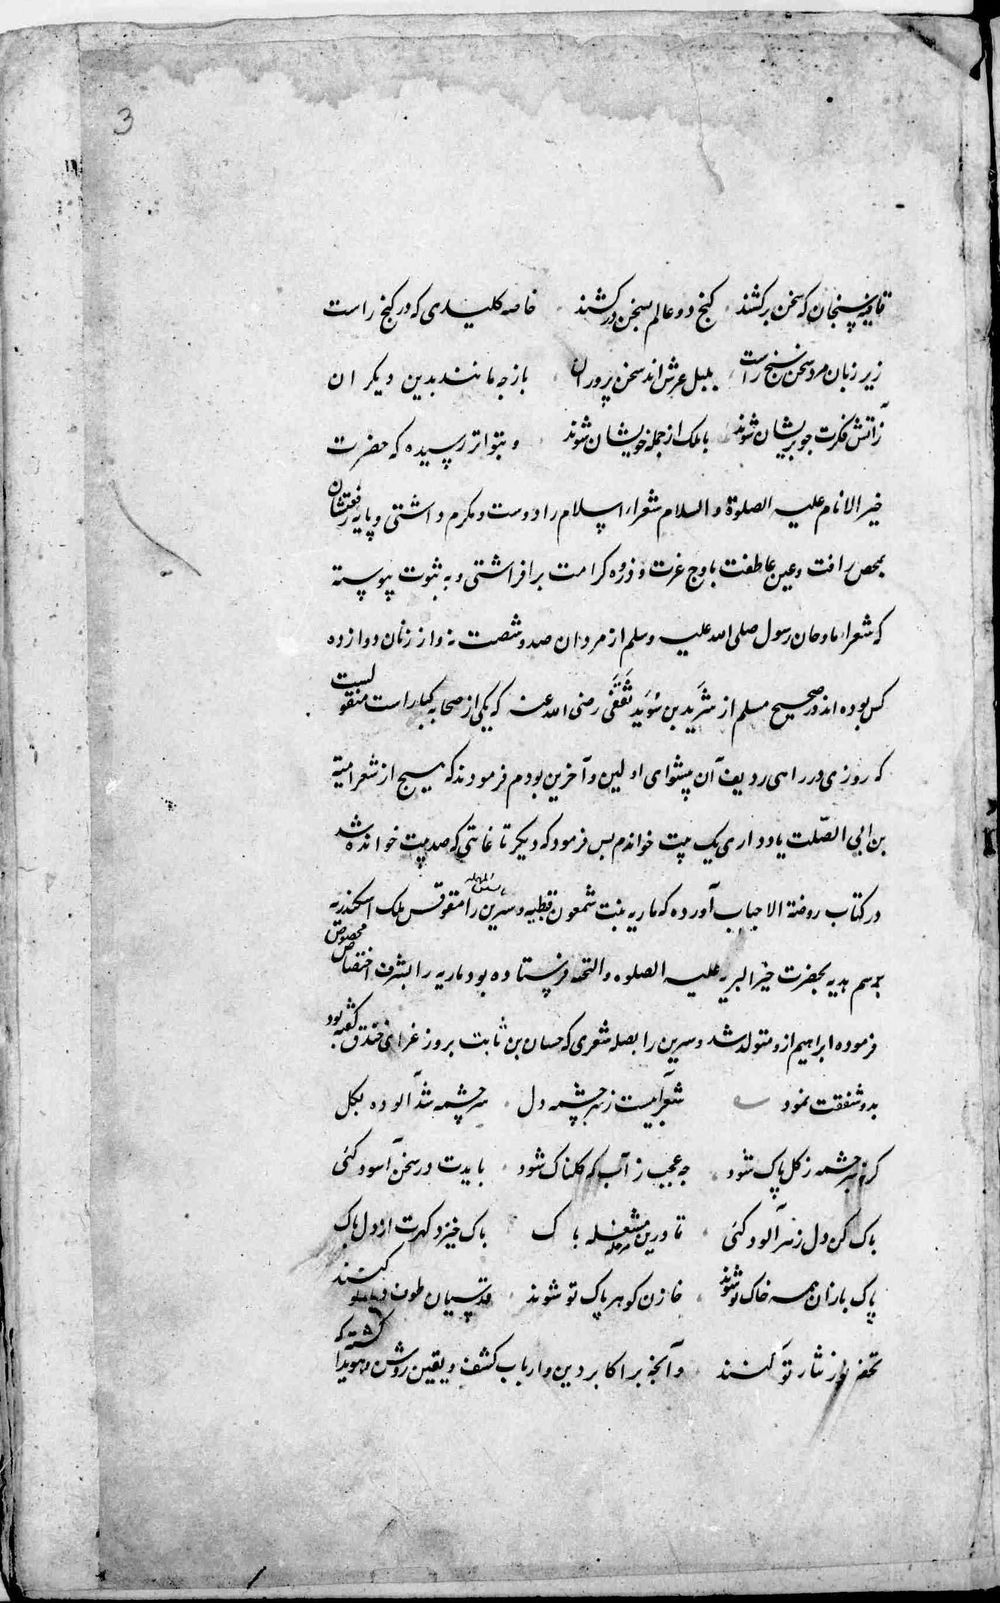 3
قافیه سنجان که سخن برکشند گنج دو عالم بسخن درکشند خاصه کلیدی که در گنج راست
زیر زبان مرد سخن سنج راست بلبل عرش اند سخن پروران باز چه مانند بدین دیکر ان
زآتش فکرت چو پریشان شوند با ملک از جمله خویشان شوند و بتواتر رسیده که حضرت
خیر الانام علیه الصلوة والسلام شعراء اسلام را دوست و مکرم داشتی و پایه رفعتشان
بمحض رافت و عین عاطفت باوج عزت و ذروه کرامت برافراشتی و به ثبوت پیوسته
که شعراء مادحان رسول صلی الله علیه وسلم از مردان صد و شصت و از زنان دوازده
کس بوده اند در صحیح مسلم از شَرِید بن سُوَید ثَقَفَی رضی الله عنه که یکی از صحابه کبار است منقولست
که روزی در راهی ردیف آن پیشوای اولین و آخرین بودم فرمودند که هیچ از شعر امیة
بن ابی الصّلت یاد داری یک بیت خواندم پس فرمود که دیکر تا غایتی که صد بیت خوانده شد
در کتاب روضة الاحباب آورده که ماریه بنت شمعون قبطیه و سیرین را مقوقس ملک اسکندریه
برسم هدیه بحضرت خیر البریه علیه الصلوه والتحیه فرستاده بود ماریه را بشرف اختصاص مخصوص
فرموده ابراهیم ازو متولد شد و سیرین را بصله شعری که حسان بن ثابت بروز غزای خندق گفته بود
بدو شفقت نمود شعر آبیست ز سرچشمه دل سرچشمه شد آلوده بکل
کر سرچشمه ز کل پاک شود چه عجب ز آب که کلناک شود بایدت در سخن آسود کئی
پاک کن دل ز هر آلود کئی تا درین مشغله پاک پاک خیزد کهرت از دل پاک
پاک بازان همه خاک تو شوند خازن کوهر پاک تو شوند قدسیان طوف کنند
تحفه از نثار تو کنند و آنچه بر اکابر دین و ارباب کشف و یقین روشن و هویدا گشته که